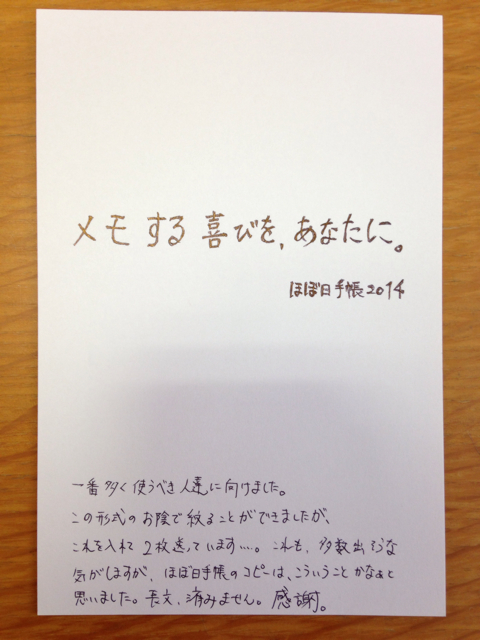 メモする喜びを、あなたに。
ほぼ日手帳2014
一番多く使うべき人達に向けました。
この形式のお陰で絞ることができましたが、
これを入れて2枚送っています…。これも、多数出そうな
気がしますが、ほぼ日手帳のコピーは、こういうことかなぁと
思いました。長文、済みません。感謝。